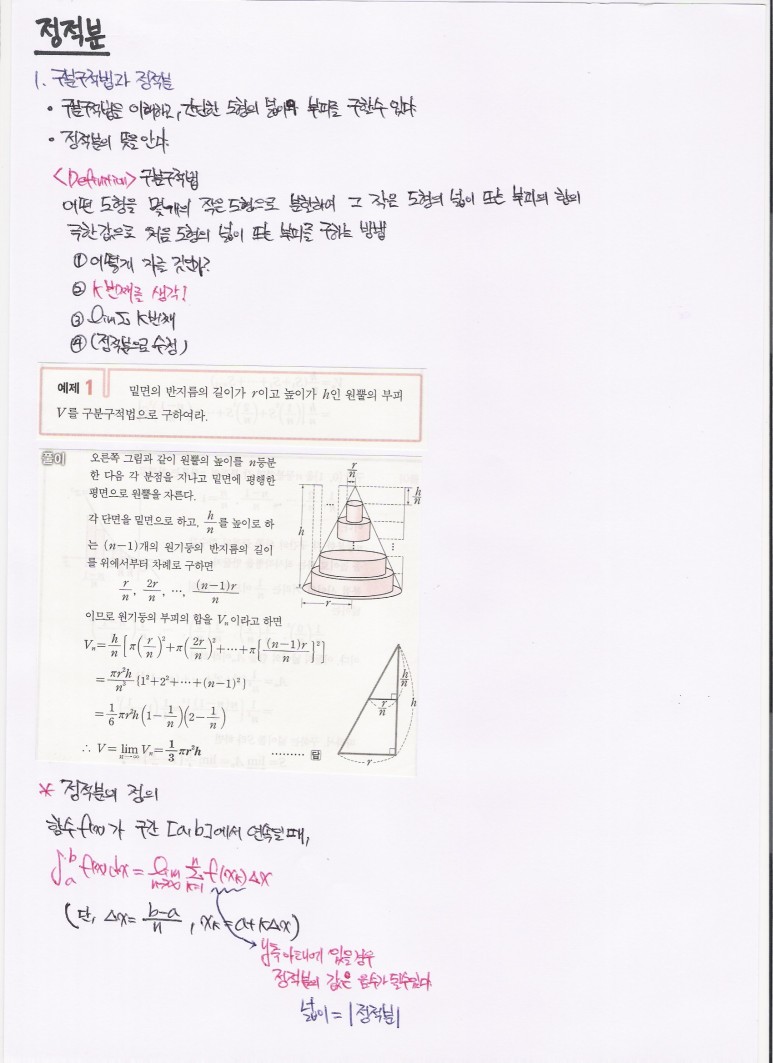 정적분
1. 구분구적법과 정적분
• 구분구적법을 이해하고, 간단한 도형의 넓이와 부피를 구할수 있다
• 정적분의 뜻을 안다.
<Definition> 구분구적법
어떤 도형을 몇개의 작은 도형으로 분할하여 그 작은 도형의 넓이 또는 부피의 합의
극한값으로 처음 도형의 넓이 또는 부피를 구하는 방법
① 어떻게 자를 것인가?
② K번째를 생각!
③ lim Σ K번째
④ (정적분으로 수정)
예제 1 밑면의 반지름의 길이가 r이고 높이가 h인 원뿔의 부피
V를 구분구적법으로 구하여라.
풀이 오른쪽 그림과 같이 원뿔의 높이를 n등분
한 다음 각 분점을 지나고 밑면에 평행한
평면으로 원뿔을 자른다.
각 단면을 밑면으로 하고, h/n를 높이로 하
는 (n-1)개의 원기둥의 반지름의 길이
를 위에서부터 차례로 구하면
r/n, 2r/n, ⋯, (n-1)r/n
이므로 원기둥의 부피의 합을 Vₙ이라고 하면
Vₙ = h/n [π(r/n)² + π(2r/n)² + ⋯ + π{(n-1)r/n}²]
= πr²h/n³ {1²+2²+⋯+(n-1)²}
= 1/6 πr²h(1-1/n)(2-1/n)
∴ V = lim n→∞ Vₙ = 1/3 πr²h ⋯⋯⋯ 답
r/n
h/n
h
r
h/n
r/n
h
r
* 정적분의 정의
함수 f(x)가 구간 [a, b]에서 연속일 때,
∫ₐᵇ f(x)dx = lim n→∞ Σ k=1 n f(xₖ)Δx
(단, Δx = b-a/n, xₖ = a+kΔx)
y축 아래에 있을 경우
정적분의 값은 음수가 될수있다
넓이 = |정적분|